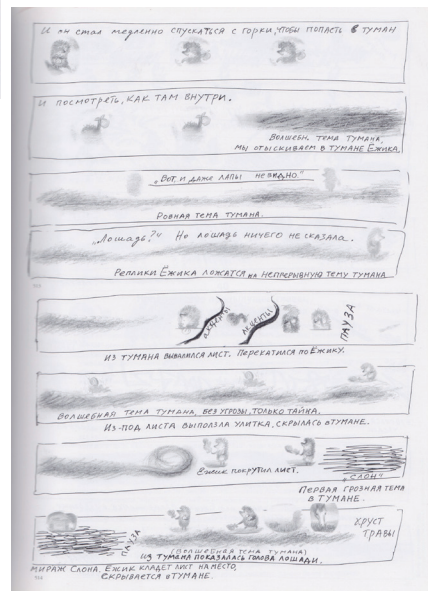 И он стал медленно спускаться с горки, чтобы попасть в туман
и посмотреть, как там внутри.
Волшебн. тема тумана,
мы отыскиваем в тумане Ёжика.
„Вот, и даже лапы не видно."
Ровная тема тумана.
„Лошадь?" Но лошадь ничего не сказала.
Реплики Ёжика ложатся на непрерывную тему тумана
акценты
акценты
ПАУЗА
Из тумана вывалился лист. Перекатился по Ёжику.
Волшебная тема тумана, без угрозы, только тайна.
Из-под листа выползла улитка, скрылась в тумане.
Ёжик покрутил лист.
„Слон"
Первая грозная тема
в тумане.
ПАУЗА
Хруст
травы
(Волшебная тема тумана)
Из тумана показалась голова лошади.
Мираж Слона. Ёжик кладёт лист на место,
скрывается в тумане.